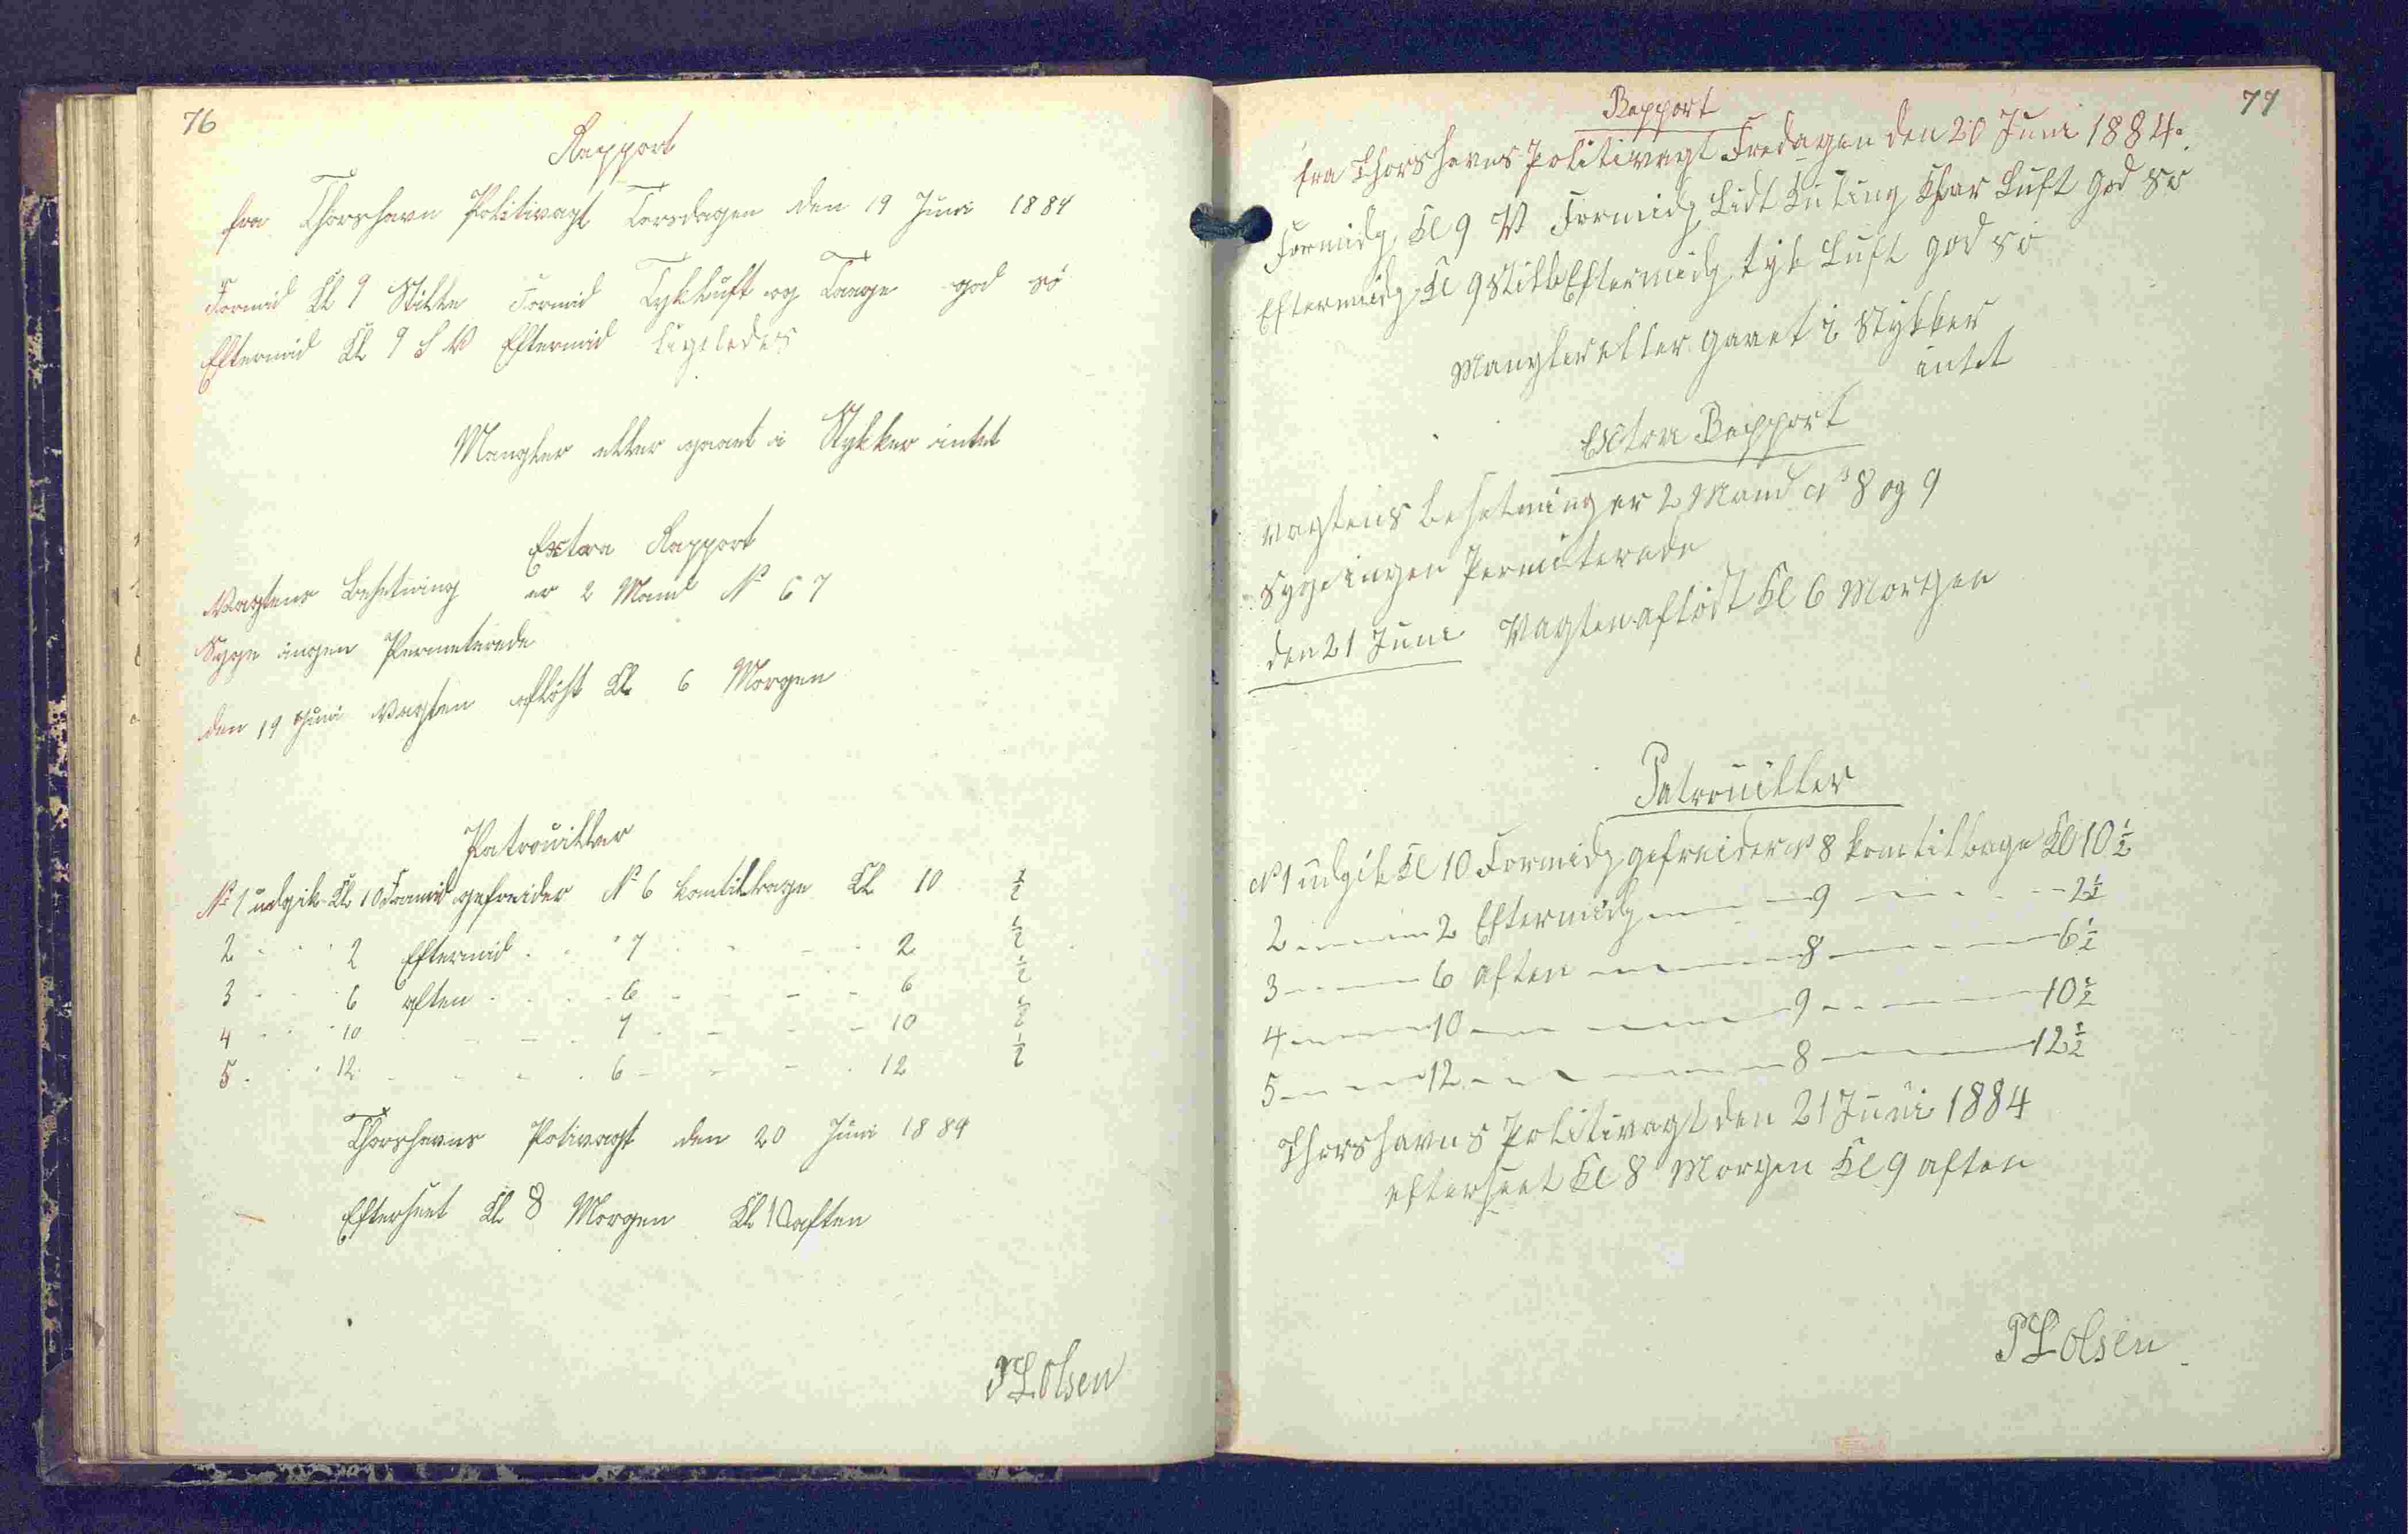 76
Rapport
fra Thorshavn Politivagt Torsdagen den 19 Juni 1884
Formid Kl 9 Stille Formid Tykluft og Taage god sö
Eftermid Kl 9 S V Eftermid Ligeledes
Mangler eller gaaet i Stykker intet
Extra Rapport
Vagtens Besetning er 2 Mand No 6 7
Syge ingen Permeterede
den 19 Juni Vagten aflöst Kl 6 Morgen
Patrouiller
No 1 udgik Kl 10 Formid gefreider No 6 komtilbage Kl 10 ½
2 - - - 2 Eftermid - - " 7 - - - 2 ½
3 - - - 6 aften - - - 6 - - - 6 ½
4 - - - 10 - - - 7 - - - 10 ½
5 - - - 12 - - - 6 - - - 12 ½
Thorshavns Polivagt den 20 Juni 1884
Efterseet Kl 8 Morgen Kl 10 aften
P L Olsen
77
Rapport
fra Thorshavns Politivagt Fredagen den 20 Juni 1884.
Formidg Kl 9 V Formidg Lidt Kuling Klar Luft god sö
Eftermidg Kl 9 Stille Eftermidg tyk Luft god sö
Mangler eller gaaet i Stykker
intet
Extra Rapport
Vagtens Besetning er 2 Mand No 8 og 9
Syge ingen Permiterede
den 21 Juni Vagten aflöst Kl 6 Morgen
Patrouiller
No 1 udgik Kl 10 Formidg gefreider No 8 kom tilbage Kl 10 ½
2 - - - 2 Eftermidg - - - 9 - - - 2 ½
3 - - - 6 aften - - - 8 - - - 6 ½
4 - - - 10 - - - 9 - - - 10 ½
5 - - - 12 - - - 8 - - - 12 ½
Thorshavns Politivagt den 21 Juni 1884
efterseet Kl 8 Morgen Kl 9 aften
P L Olsen